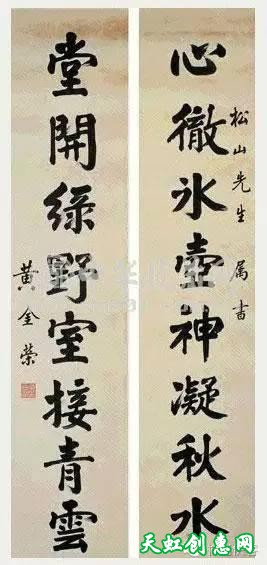 心徹冰壺神凝秋水
松山先生属書
堂開綠野室接青雲
黃金榮
天虹创惠网